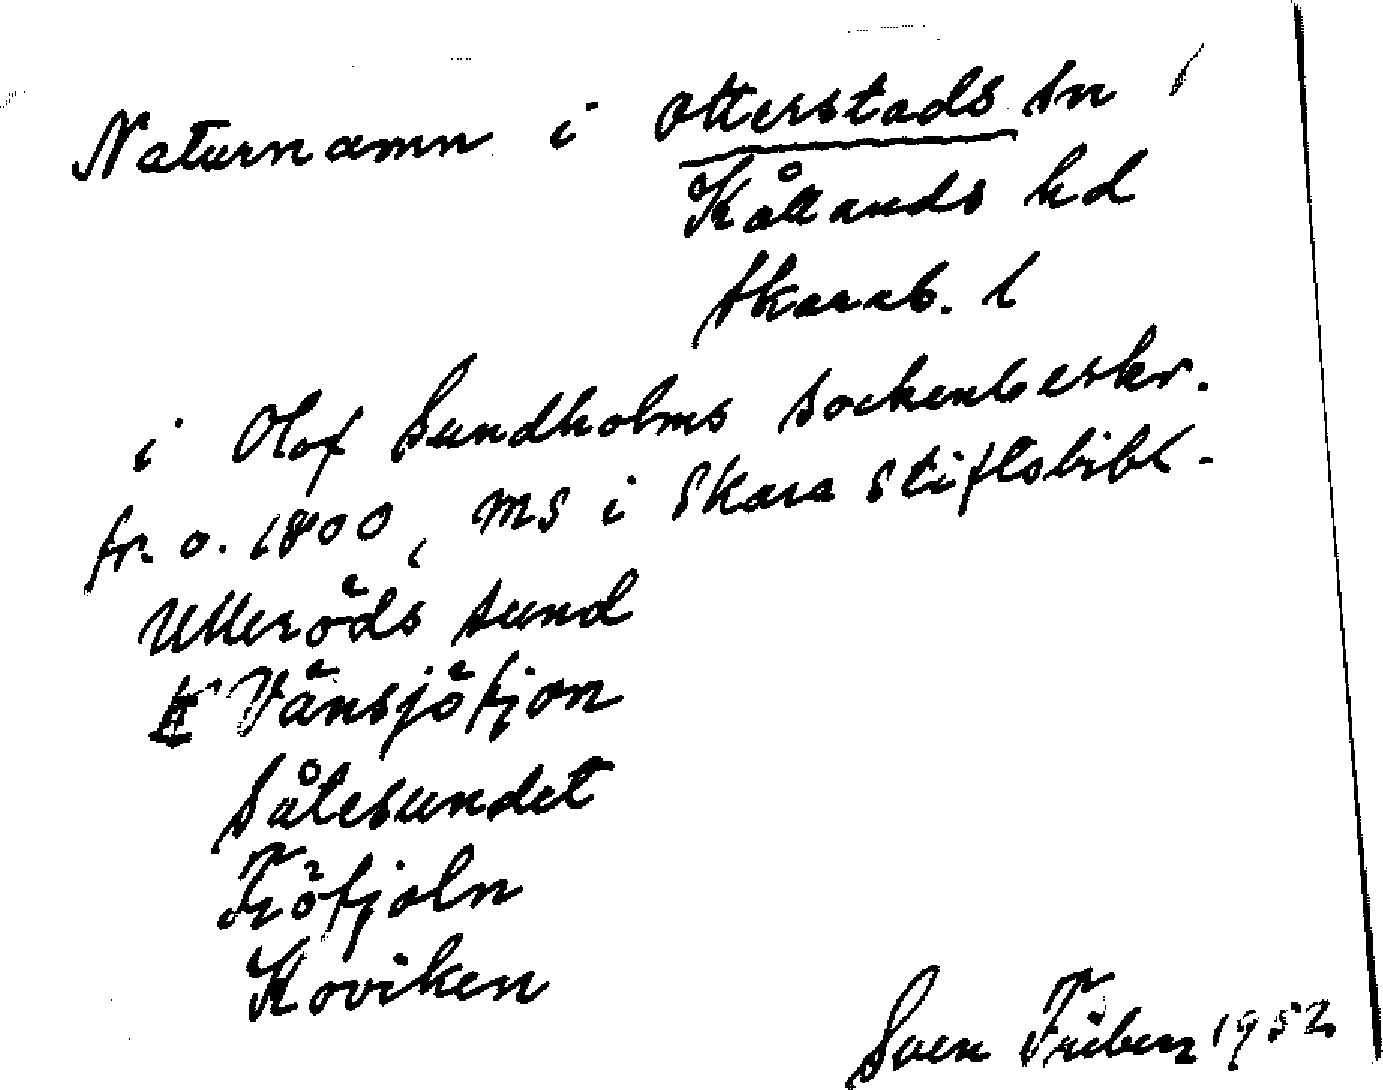 Naturnamn i Otterstads sn
Kållands hd
Skarab. l
i Olof Sundholms sockenbeskr.
fr. o. 1800, MS i Skara Stiftsbibl.
Ulleröds sund
Vänsjöfjon
Såtesundet
Fröfjoln
Koviken
Sven Friberg 1952